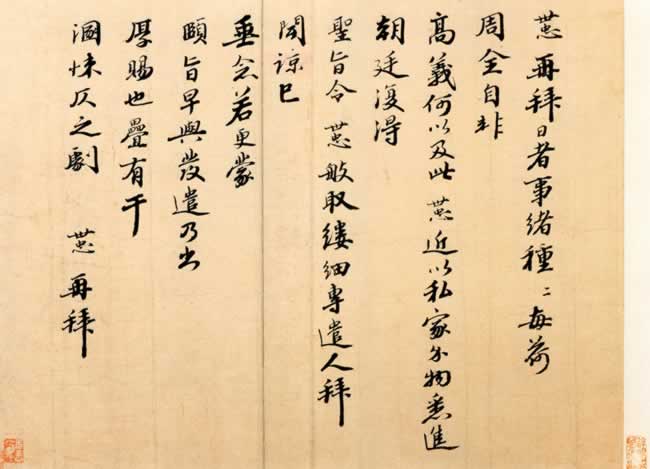 世忠再拜日者事緒種〻每荷
周全自非
高義何以及此世忠近以私家分物悉進
朝廷復得
聖旨令世忠般取縷細專遣人拜
聞諒已
垂念若更蒙
頤旨早與發遣乃出
厚賜也疊有干
溷悚仄之劇世忠再拜